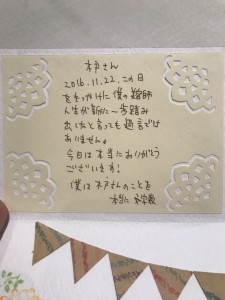 木戸さん
2016.11.22.この日
をきっかけに僕の講師
人生が新たに一歩踏み
出したと言っても過言では
ありません。
今日は本当にありがとう
ございます！
僕は木戸さんのことを
本当に